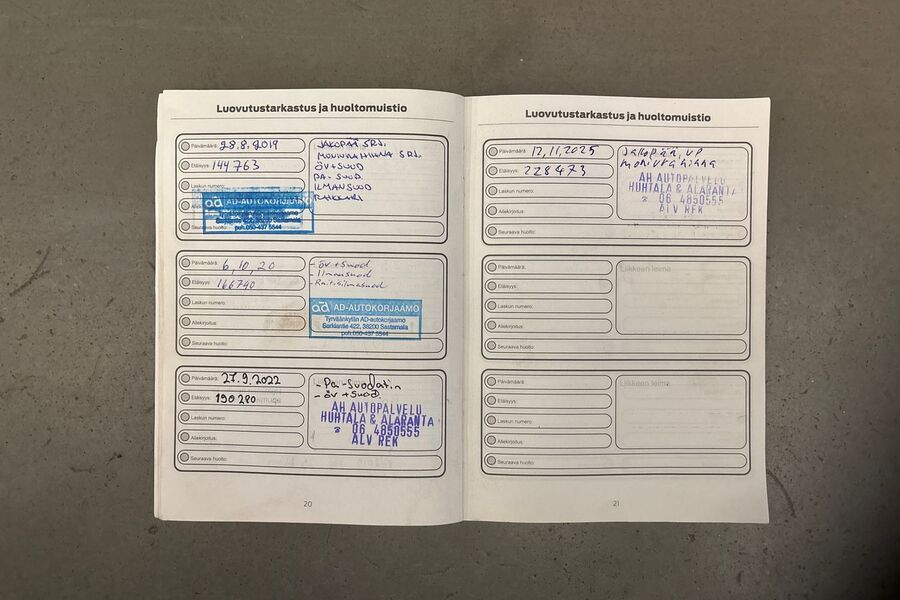 Luovutustarkastus ja huoltomuistio
Päivämäärä: 28.8.2019
Etäisyys: 144763
Laskun numero:
Seuraava huolto:
JAKOPÄÄ SRJ.
MONIURAHIHNA SRJ.
ÖV+SUOD
PA. SUOD.
ILMANSUOD
RAIKKARI
ad AD-AUTOKORJAAMO
puh.050-437 5544
Päivämäärä: 6.10.20
Etäisyys: 166740
Laskun numero:
Allekirjoitus:
Seuraava huolto:
- öv+suod
- Ilmansuod
- Raitisilmasuod
ad AD-AUTOKORJAAMO
Tyrväänkylän AD-autokorjaamo
Sarkiantie 422, 38200 Sastamala
puh.050-437 5544
Päivämäärä: 27.9.2022
Etäisyys: 190280
Laskun numero:
Allekirjoitus:
Seuraava huolto:
- Pa-Suodatin
- öv+suod.
AH AUTOPALVELU
HUHTALA & ALARANTA
06 4850555
ALV REK
20
Luovutustarkastus ja huoltomuistio
Päivämäärä: 12.11.2025
Etäisyys: 228473
Laskun numero:
Allekirjoitus:
Seuraava huolto:
Jakopää, VP
moniurahihna
AH AUTOPALVELU
HUHTALA & ALARANTA
06 4850555
ALV REK
Päivämäärä:
Etäisyys:
Laskun numero:
Allekirjoitus:
Seuraava huolto:
Liikkeen leima
Päivämäärä:
Etäisyys:
Laskun numero:
Allekirjoitus:
Seuraava huolto:
Liikkeen leima
21